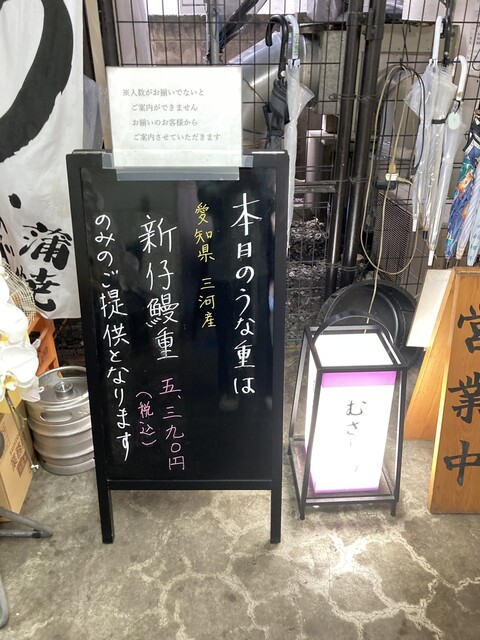 ※人数がお揃いでないと
ご案内ができません
お揃いのお客様から
ご案内させていただきます
本日のうな重は
愛知県 三河産
新仔鰻重 五、三九〇円
(税込)
のみのご提供となります
蒲焼
むさし
営業中